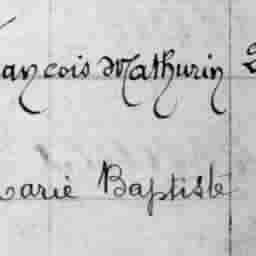 François Mathurin
Marie Baptiste